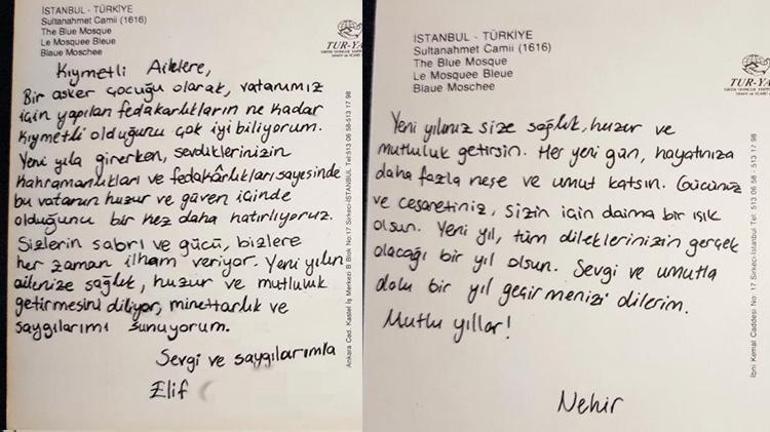 İSTANBUL - TÜRKİYE
Sultanahmet Camii (1616)
The Blue Mosque
Le Mosquee Bleue
Blaue Moschee
TUR-YA
Kıymetli Ailelere,
Bir asker çocuğu olarak, vatanımız
için yapılan fedakarlıkların ne kadar
kıymetli olduğunu çok iyi biliyorum.
Yeni yıla girerken, sevdiklerinizin
kahramanlıkları ve fedakârlıkları sayesinde
bu vatanın huzur ve güven içinde
olduğunu bir kez daha hatırlıyoruz.
Sizlerin sabrı ve gücü, bizlere
her zaman ilham veriyor. Yeni yılın
ailenize sağlık, huzur ve mutluluk
getirmesini diliyor, minettarlık ve
saygılarımı sunuyorum.
Sevgi ve saygılarımla
Elif
Ankara Cad. Kastel İş Merkezi B Blok No.17 Sirkeci-İSTANBUL Tel: 513 06 58-513 17 98
İSTANBUL - TÜRKİYE
Sultanahmet Camii (1616)
The Blue Mosque
Le Mosquee Bleue
Blaue Moschee
TUR-YA
Yeni yılınız size sağlık, huzur ve
mutluluk getirsin. Her yeni gün, hayatınıza
daha fazla neşe ve umut katsın. Gücünüz
ve cesaretiniz, sizin için daima bir ışık
olsun. Yeni yıl, tüm dileklerinizin gerçek
olacağı bir yıl olsun. Sevgi ve umutla
dolu bir yıl geçirmenizi dilerim.
Mutlu yıllar!
Nehir
İbni Kemal Caddesi No: 17 Sirkeci-İstanbul Tel: 513 06 58 - 513 17 98